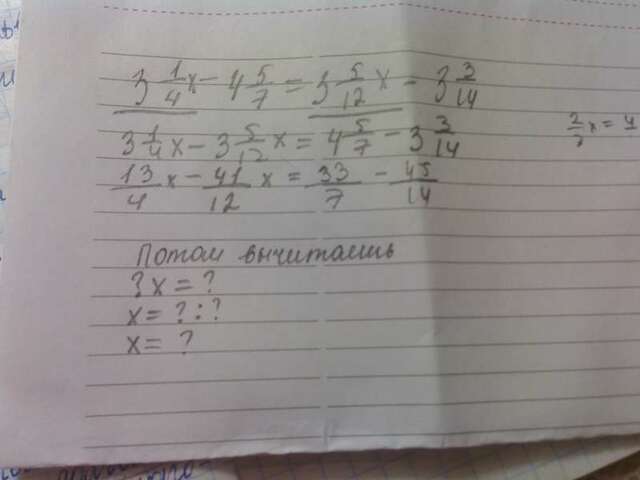 3 1/4 x - 4 5/7 = 3 5/12 x - 3 3/14
3 1/4 x - 3 5/12 x = 4 5/7 - 3 3/14
13/4 x - 41/12 x = 33/7 - 45/14
Потом вычитаешь
?x = ?
x = ? : ?
x = ?